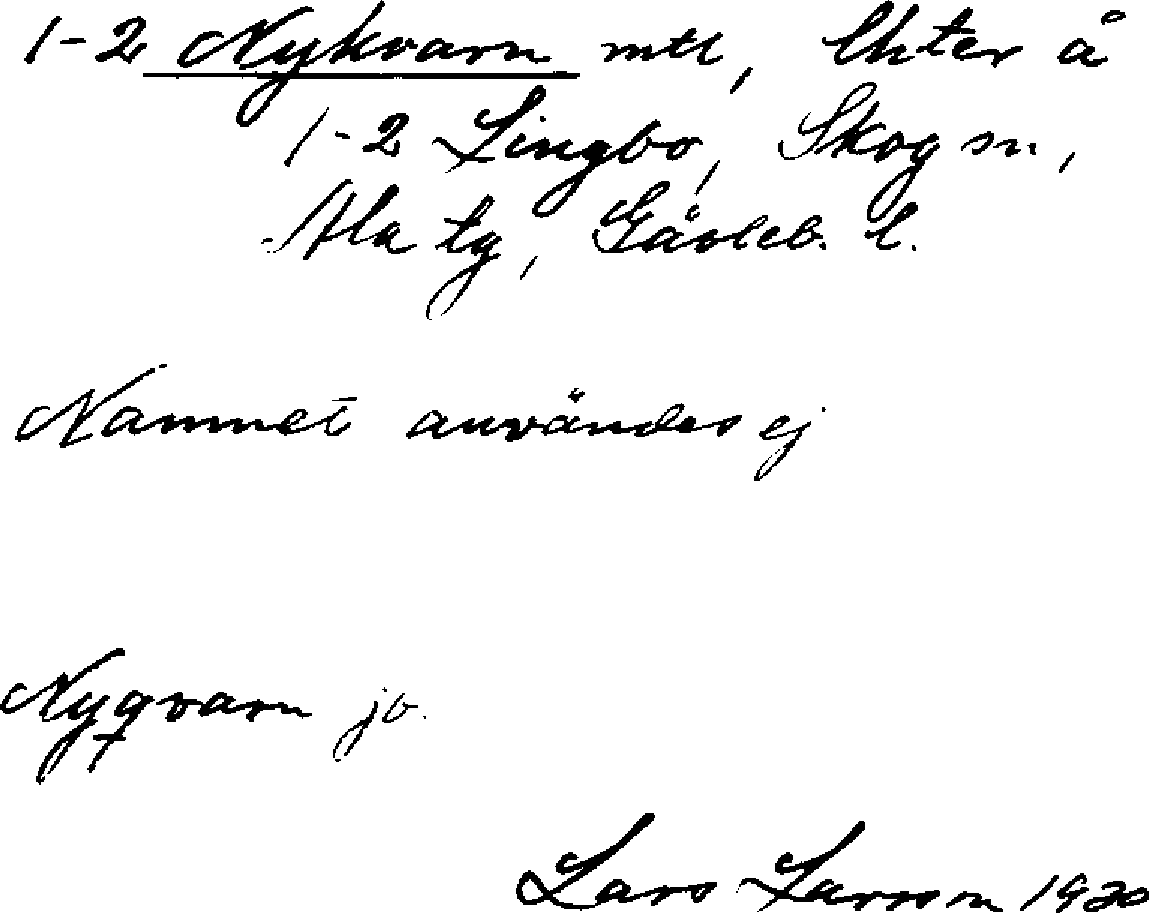 1-2 Nykvarn mtl, lhter å
1-2 Lingbo, Skog sn,
Ala tg, Gävleb. l.
Namnet användes ej
Nyqvarn jb.
Lars Larsson 1930